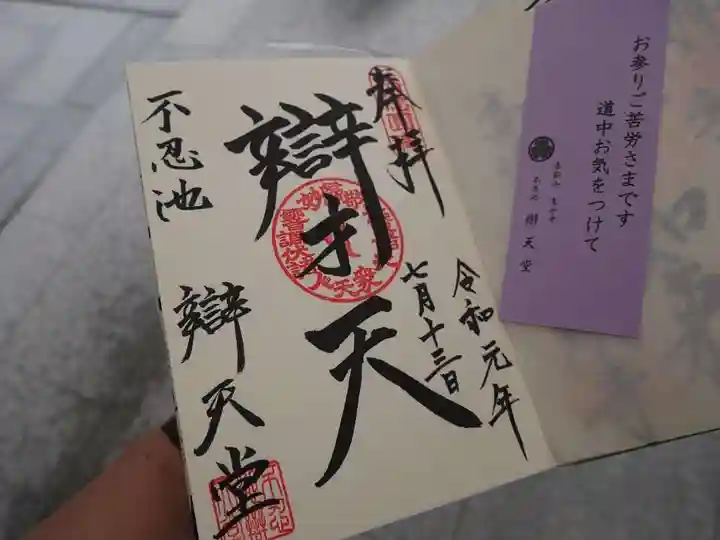 お参りご苦労さまです
道中お気をつけて
辯天堂
奉拝
令和元年
七月十三日
辯才天
不忍池
辯天堂